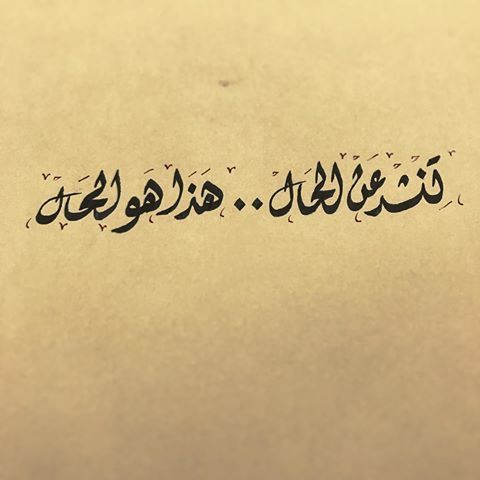 تَنْشد عَنْ الحال .. هَذَا هَو الحَال